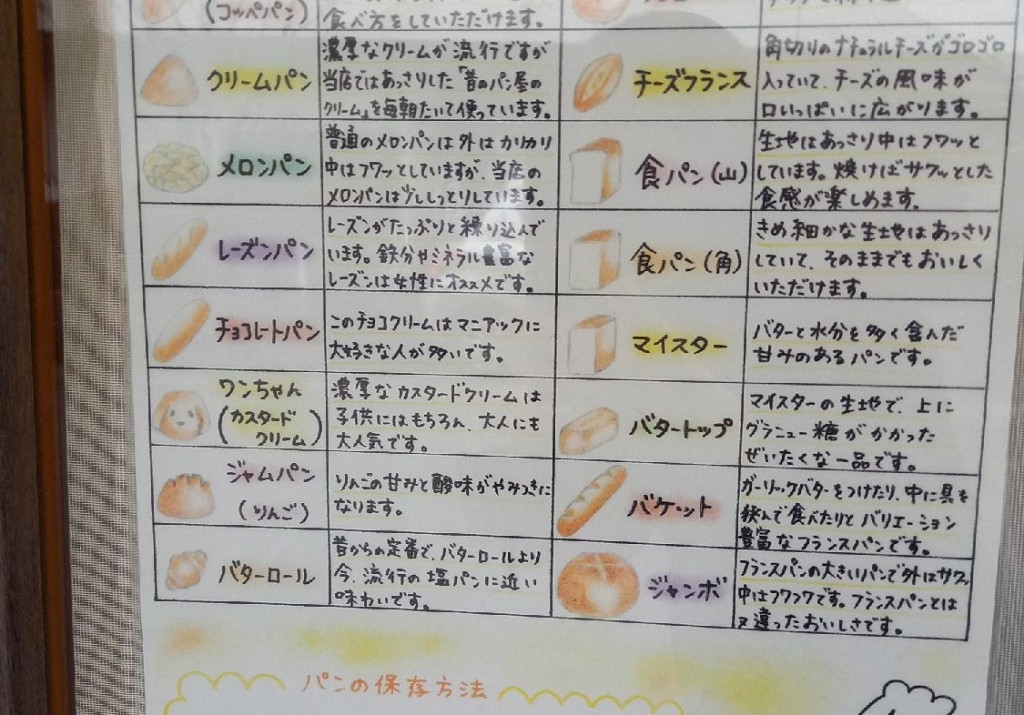 (コッペパン)
食べ方をしていただけます。
クリームパン
濃厚なクリームが流行ですが
当店ではあっさりした「昔のパン屋の
クリーム」を毎朝たいて使っています。
メロンパン
普通のメロンパンは外はカリカリ
中はフワッとしていますが、当店の
メロンパンは少ししっとりしています。
レーズンパン
レーズンがたっぷりと練り込んで
います。鉄分やミネラル豊富な
レーズンは女性にオススメです。
チョコレートパン
このチョコクリームはマニアックに
大好きな人が多いです。
ワンちゃん
(カスタード
クリーム)
濃厚なカスタードクリームは
子供にはもちろん、大人にも
大人気です。
ジャムパン
(りんご)
りんごの甘みと酸味がやみつきに
なります。
バターロール
昔からの定番で、バターロールより
今、流行の塩パンに近い
味わいです。
チーズフランス
角切りのナチュラルチーズがゴロゴロ
入っていて、チーズの風味が
口いっぱいに広がります。
食パン(山)
生地はあっさり中はフワッと
しています。焼けばサクッとした
食感が楽しめます。
食パン(角)
きめ細かな生地はあっさり
していて、そのままでもおいしく
いただけます。
マイスター
バターと水分を多く含んだ
甘みのあるパンです。
バタートップ
マイスターの生地で、上に
グラニュー糖がかかった
ぜいたくな一品です。
バケット
ガーリックバターをつけたり、中に具を
挟んで食べたりとバリエーション
豊富なフランスパンです。
ジャンボ
フランスパンの大きいパンで外はサクッ
中はフワフワです。フランスパンとは
又違ったおいしさです。
パンの保存方法